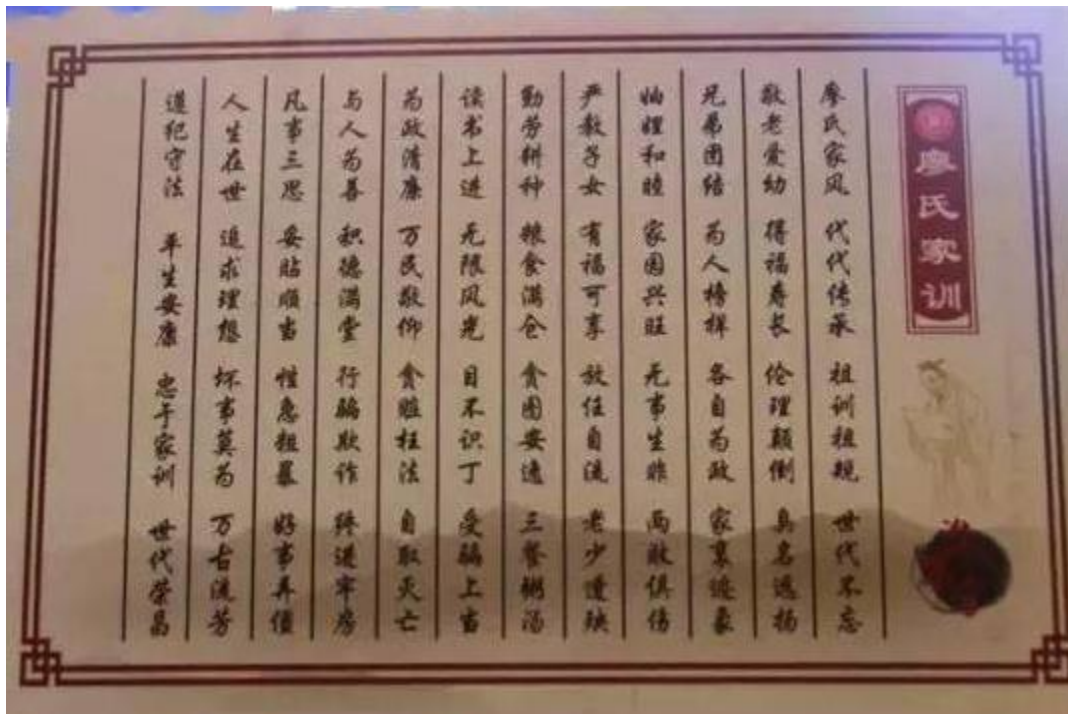 廖氏家训
廖氏家风 代代传承 祖训祖规 世代不忘
敬老爱幼 得福寿长 伦理颠倒 臭名远扬
兄弟团结 为人榜样 各自为政 家衰迹象
妯娌和睦 家园兴旺 无事生非 两败俱伤
严教子女 有福可享 放任自流 老少遭殃
勤劳耕种 粮食满仓 贪图安逸 三餐粥汤
读书上进 无限风光 目不识丁 受骗上当
为政清廉 万民敬仰 贪赃枉法 自取灭亡
与人为善 积德满堂 行骗欺诈 终进牢房
凡事三思 妥贴顺当 性急粗暴 好事弄僵
人生在世 追求理想 坏事莫为 万古流芳
遵纪守法 平生安康 忠于家训 世代荣昌